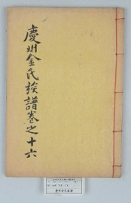 慶州金氏族譜卷之十六